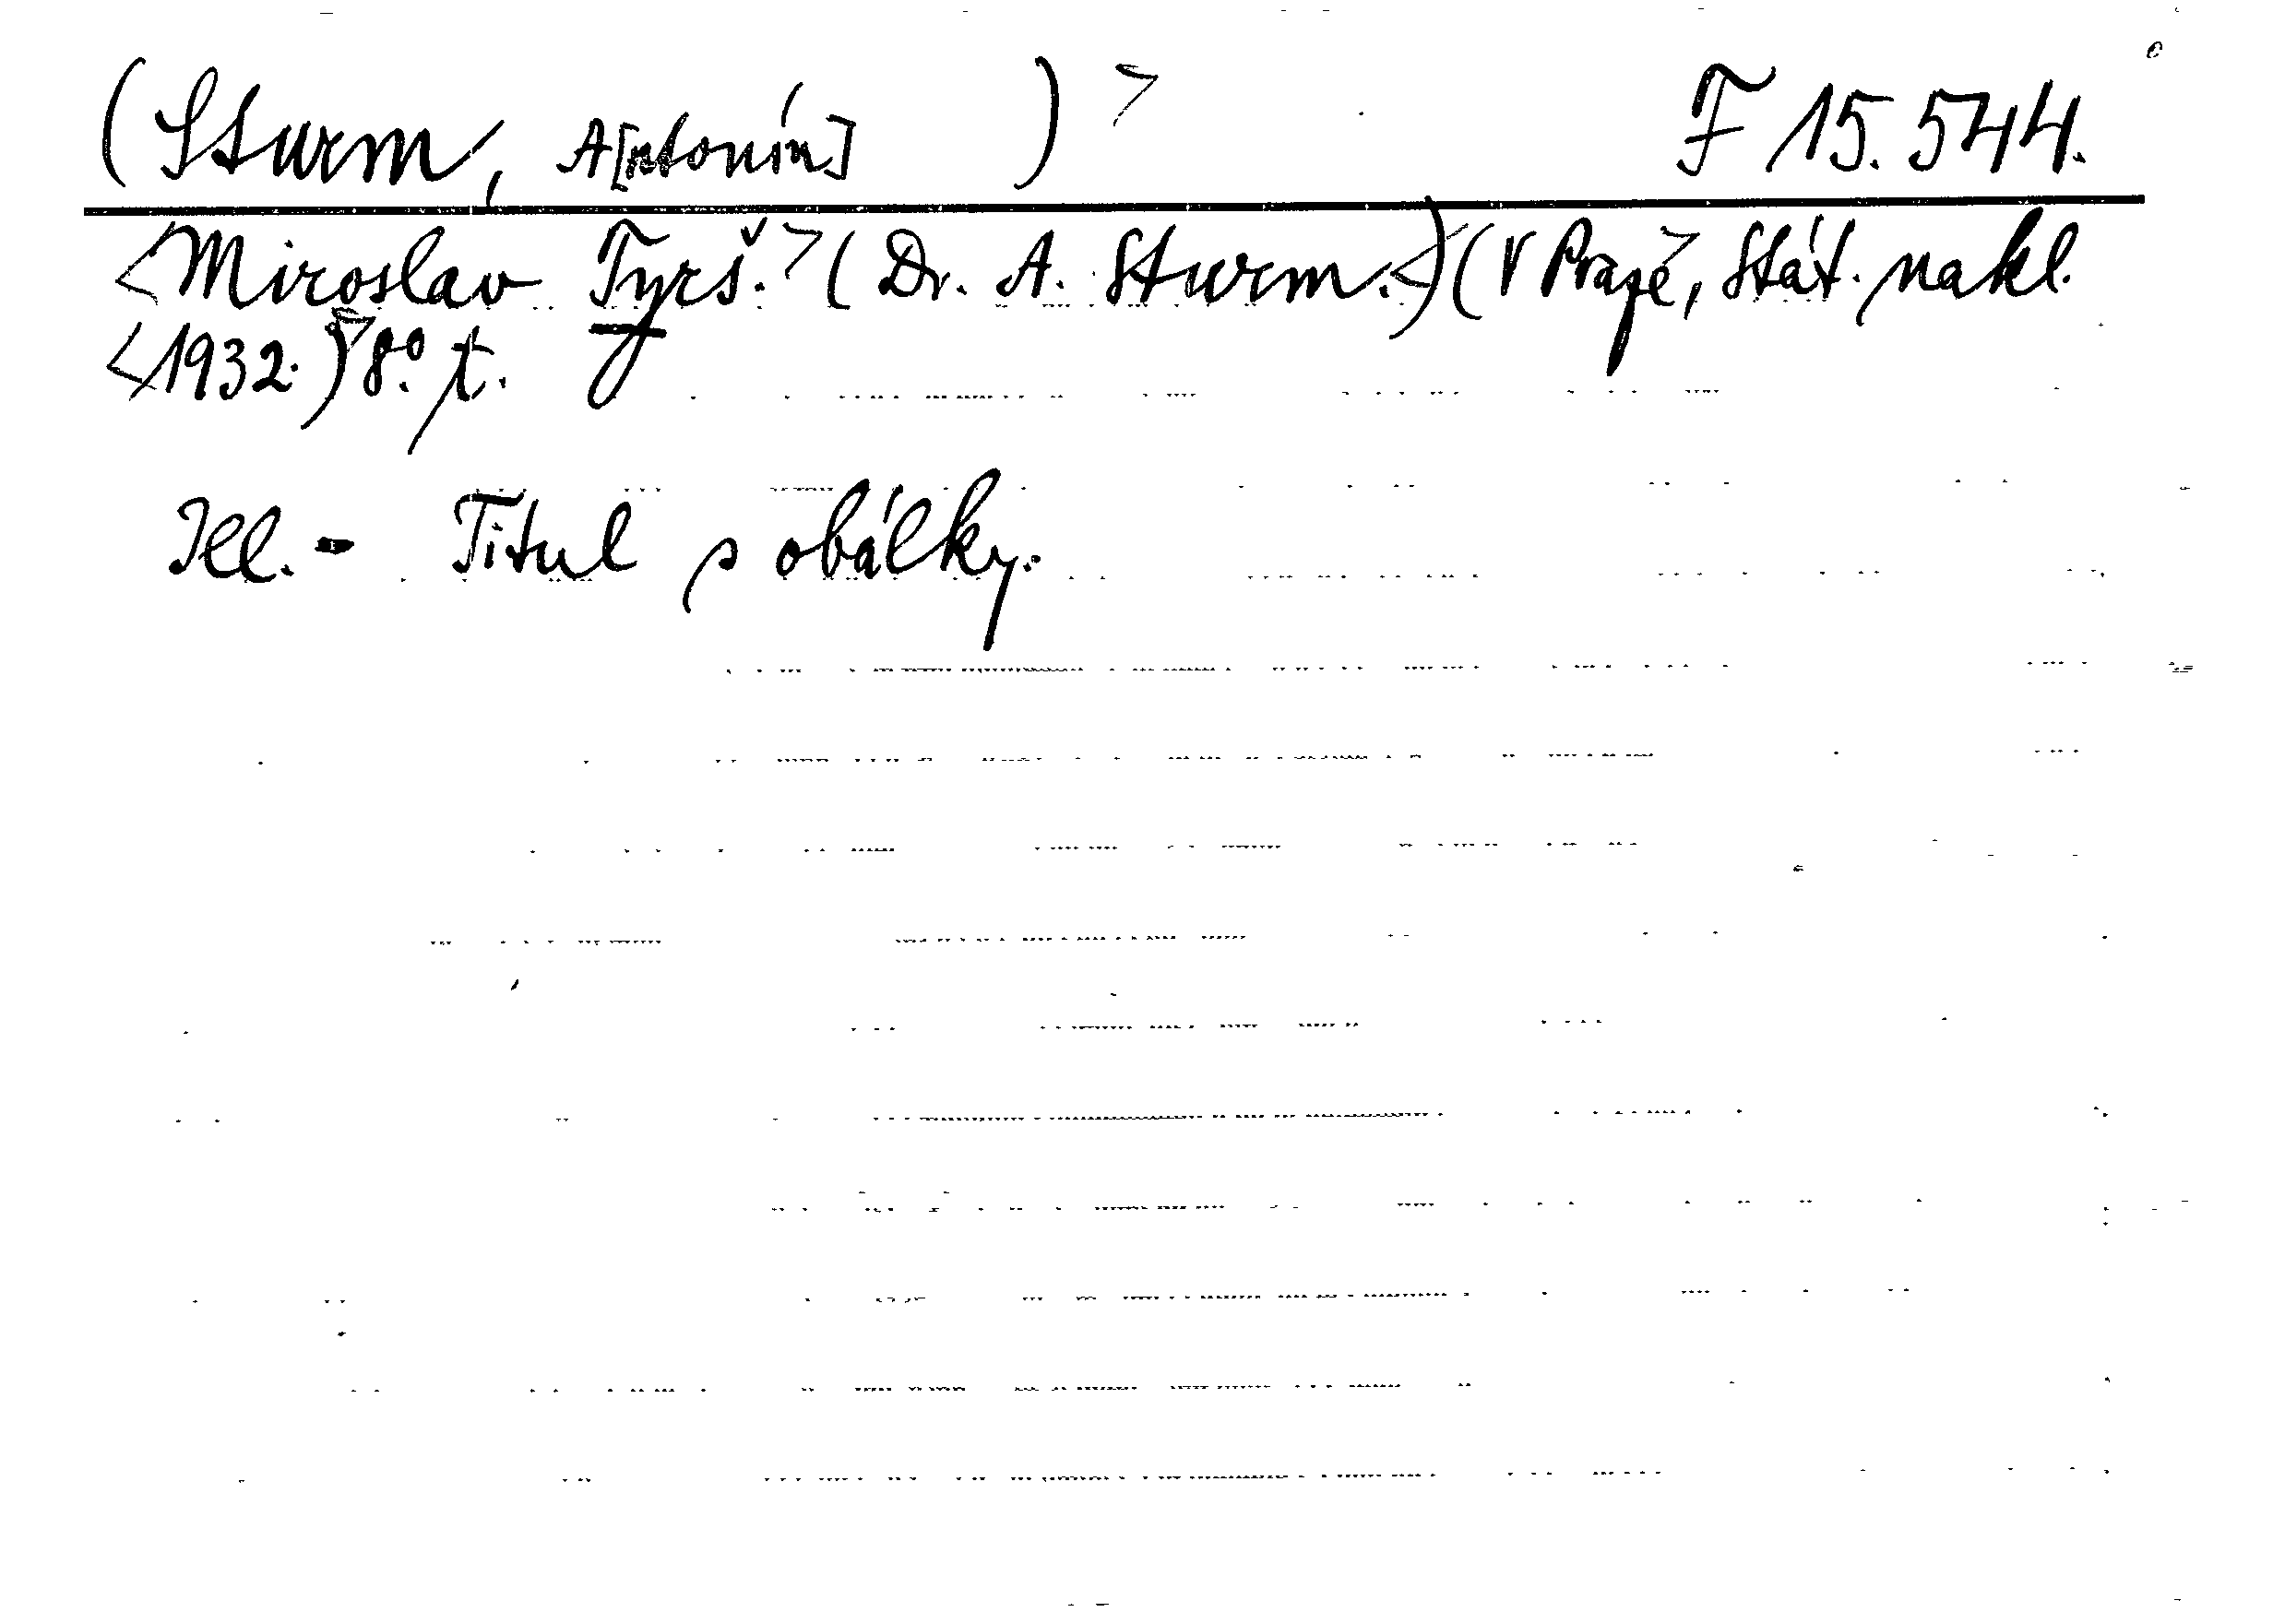 (Sturm, A[ntonín] ) > F 15.544.
<Miroslav Tyrš.> (Dr. A. Sturm.<) (V Praze>, Stát. nakl.
<1932.)> 8°. t.
Ill. - Titul s obálky.